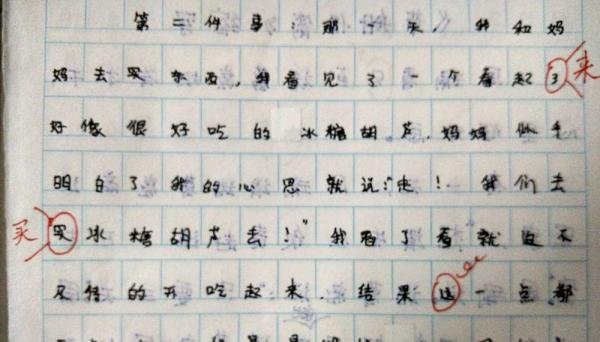 第二件事:那一天,我和妈
妈去买东西,我看见了一个看起了来
好像很好吃的冰糖胡芦,妈妈似乎
明白了我的心思就说:"走!我们去
买买冰糖胡芦去!"我看了看就迫不
及待的开吃起来,结果这一点都